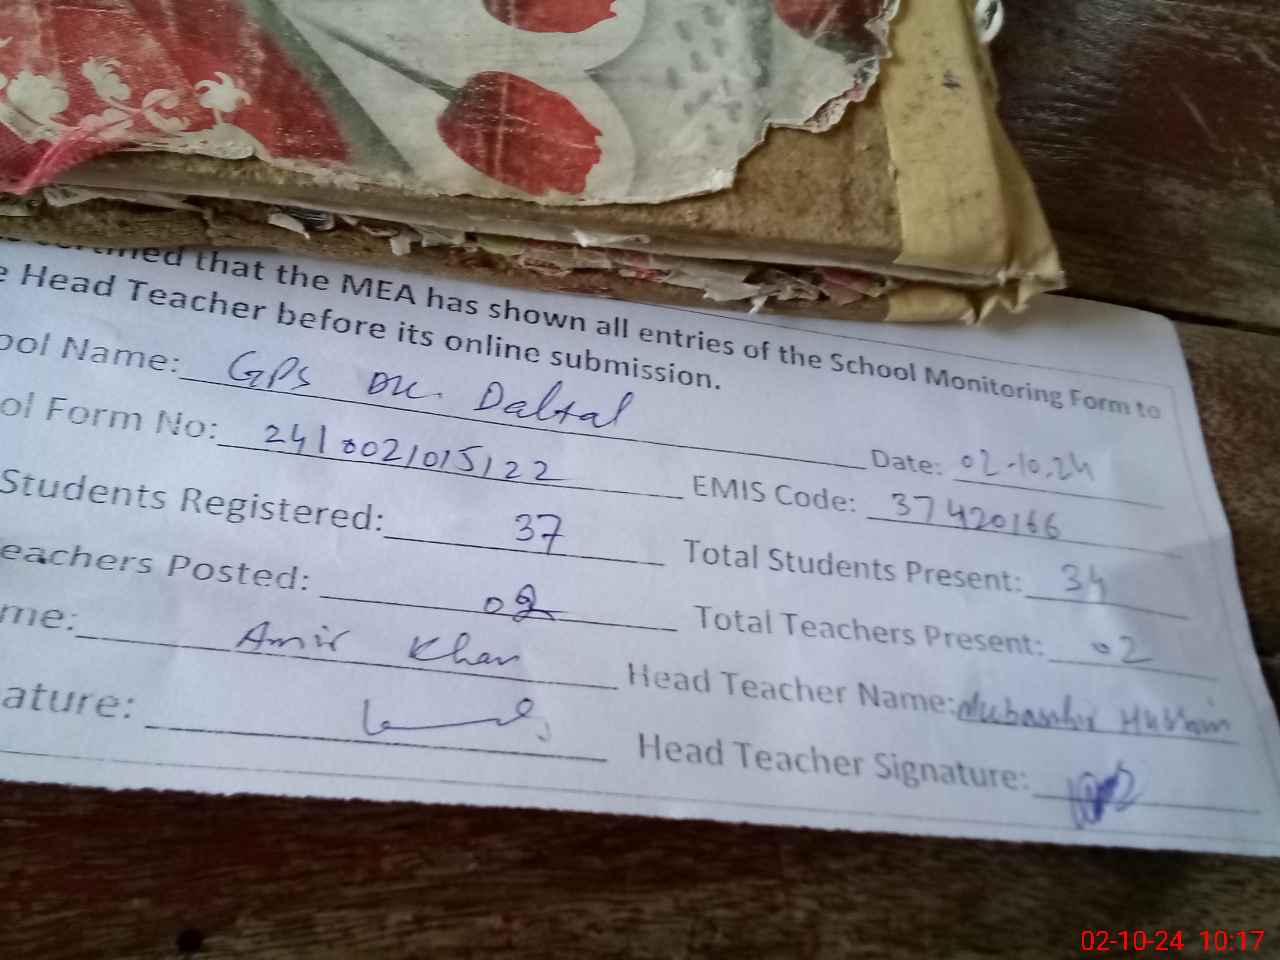 certified that the MEA has shown all entries of the School Monitoring Form to
e Head Teacher before its online submission.
ool Name: GPS DK. Daltal Date: 02-10.24
ol Form No: 2410021015122 EMIS Code: 37420166
Students Registered: 37 Total Students Present: 34
eachers Posted: 02 Total Teachers Present: 02
me: Amir Khan Head Teacher Name: Mubashir Hussain
ature: Head Teacher Signature:
02-10-24 10:17